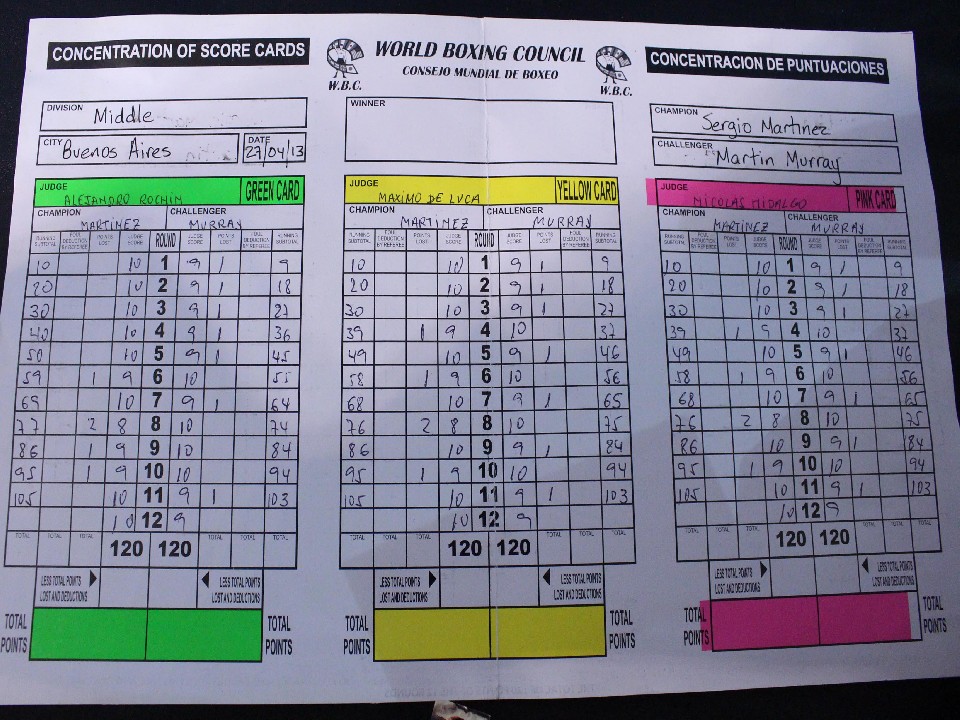 CONCENTRATION OF SCORE CARDS
WORLD BOXING COUNCIL
CONSEJO MUNDIAL DE BOXEO
W.B.C.
W.B.C.
CONCENTRACION DE PUNTUACIONES
DIVISION Middle
CITY Buenos Aires DATE 27/04/13
WINNER
CHAMPION Sergio Martinez
CHALLENGER Martin Murray
JUDGE ALEJANDRO ROCHIN GREEN CARD
CHAMPION MARTINEZ CHALLENGER MURRAY
RUNNING SUBTOTAL FOUL DEDUCTION BY REFEREE POINTS LOST JUDGE SCORE ROUND JUDGE SCORE POINTS LOST FOUL DEDUCTION BY REFEREE RUNNING SUBTOTAL
10 10 1 9 1 9
20 10 2 9 1 18
30 10 3 9 1 27
40 10 4 9 1 36
50 10 5 9 1 45
59 1 9 6 10 55
69 10 7 9 1 64
77 2 8 8 10 74
86 1 9 9 10 84
95 1 9 10 10 94
105 10 11 9 1 103
10 12 9
TOTAL TOTAL TOTAL 120 120 TOTAL TOTAL TOTAL
LESS TOTAL POINTS LOST AND DEDUCTIONS LESS TOTAL POINTS LOST AND DEDUCTIONS
TOTAL POINTS TOTAL POINTS
JUDGE MAXIMO DE LUCA YELLOW CARD
CHAMPION MARTINEZ CHALLENGER MURRAY
RUNNING SUBTOTAL FOUL DEDUCTION BY REFEREE POINTS LOST JUDGE SCORE ROUND JUDGE SCORE POINTS LOST FOUL DEDUCTION BY REFEREE RUNNING SUBTOTAL
10 10 1 9 1 9
20 10 2 9 1 18
30 10 3 9 1 27
39 1 9 4 10 37
49 10 5 9 1 46
58 1 9 6 10 56
68 10 7 9 1 65
76 2 8 8 10 75
86 10 9 9 1 84
95 1 9 10 10 94
105 10 11 9 1 103
10 12 9
TOTAL TOTAL TOTAL 120 120 TOTAL TOTAL TOTAL
LESS TOTAL POINTS LOST AND DEDUCTIONS LESS TOTAL POINTS LOST AND DEDUCTIONS
TOTAL POINTS TOTAL POINTS
JUDGE NICOLAS HIDALGO PINK CARD
CHAMPION MARTINEZ CHALLENGER MURRAY
RUNNING SUBTOTAL FOUL DEDUCTION BY REFEREE POINTS LOST JUDGE SCORE ROUND JUDGE SCORE POINTS LOST FOUL DEDUCTION BY REFEREE RUNNING SUBTOTAL
10 10 1 9 1 9
20 10 2 9 1 18
30 10 3 9 1 27
39 1 9 4 10 37
49 10 5 9 1 46
58 1 9 6 10 56
68 10 7 9 1 65
76 2 8 8 10 75
86 10 9 9 1 84
95 1 9 10 10 94
105 10 11 9 1 103
10 12 9
TOTAL TOTAL TOTAL 120 120 TOTAL TOTAL TOTAL
LESS TOTAL POINTS LOST AND DEDUCTIONS LESS TOTAL POINTS LOST AND DEDUCTIONS
TOTAL POINTS